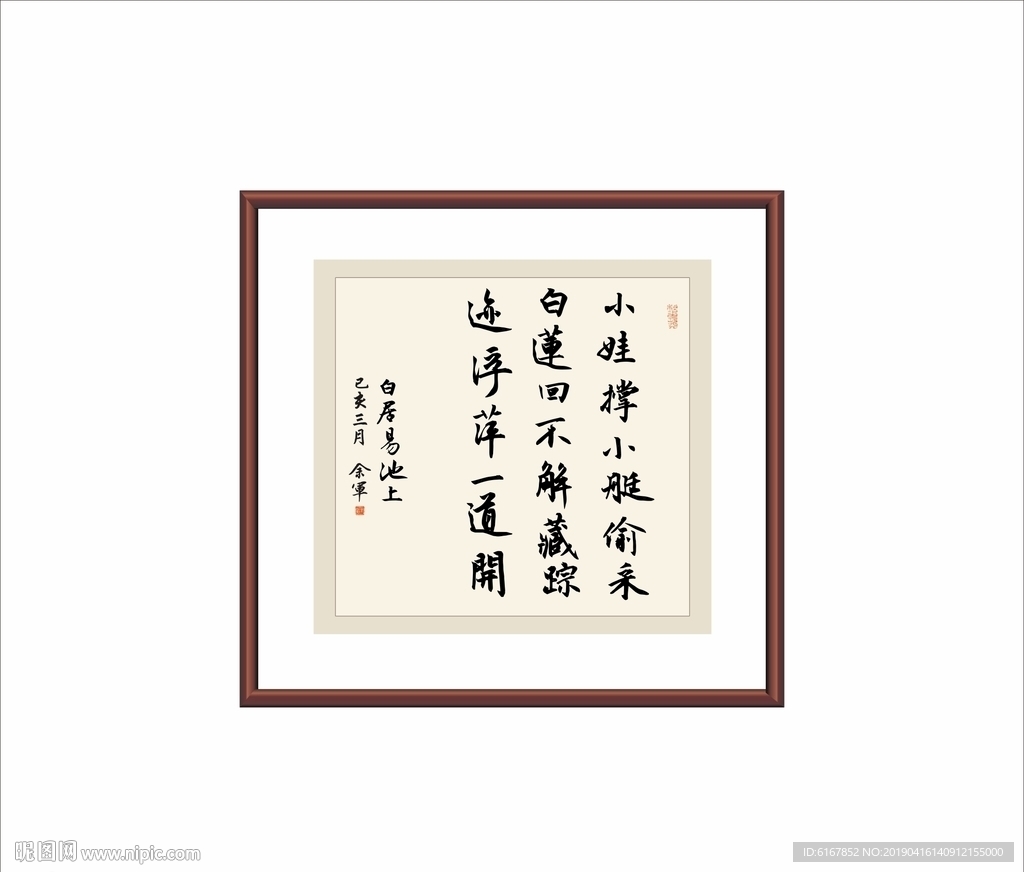 小娃撑小艇偷采
白蓮回不解藏踪
迹浮萍一道開
白居易池上
己亥三月 余軍
昵图网 www.nipic.com
ID:6167852 NO:20190416140912155000